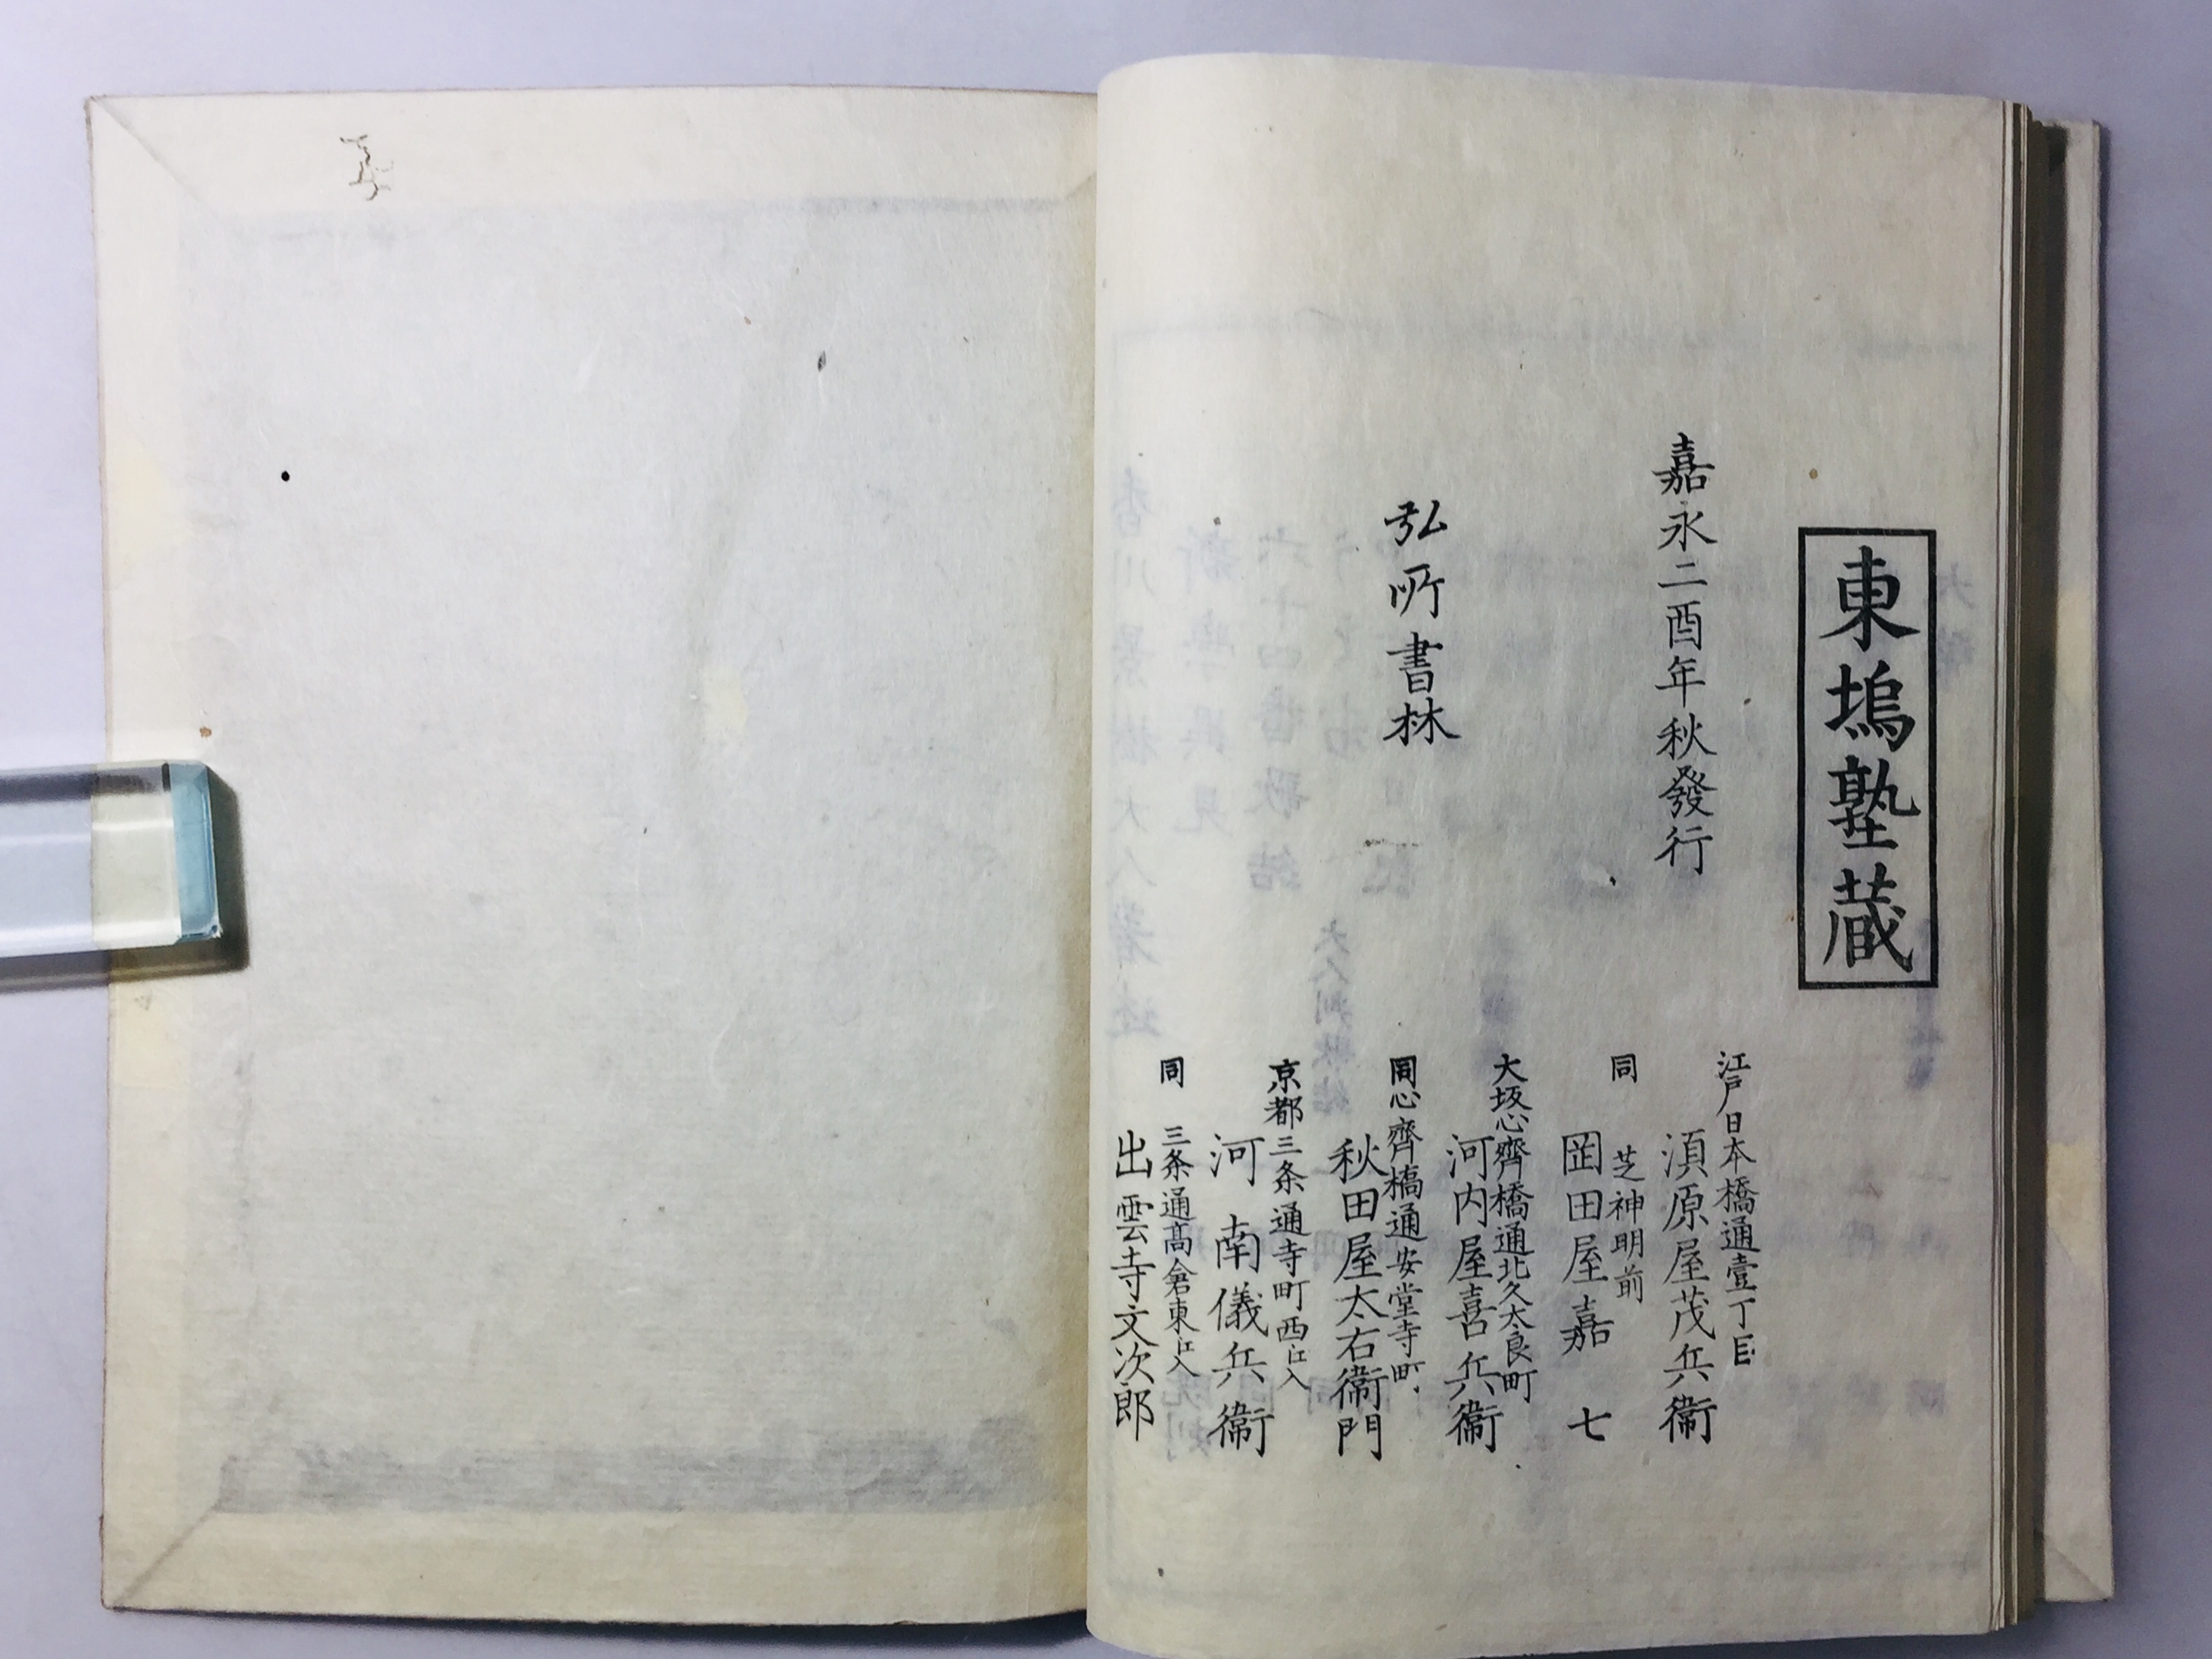 東塢塾蔵
嘉永二酉年秋發行
弘所書林
江戸日本橋通壹丁目
須原屋茂兵衞
同 芝神明前
岡田屋嘉七
大坂心齊橋通北久太良町
河内屋喜兵衞
同心齊橋通安堂寺町
秋田屋太右衞門
京都三条通寺町西江入
河南儀兵衞
同 三条通髙倉東江入
出雲寺文次郎